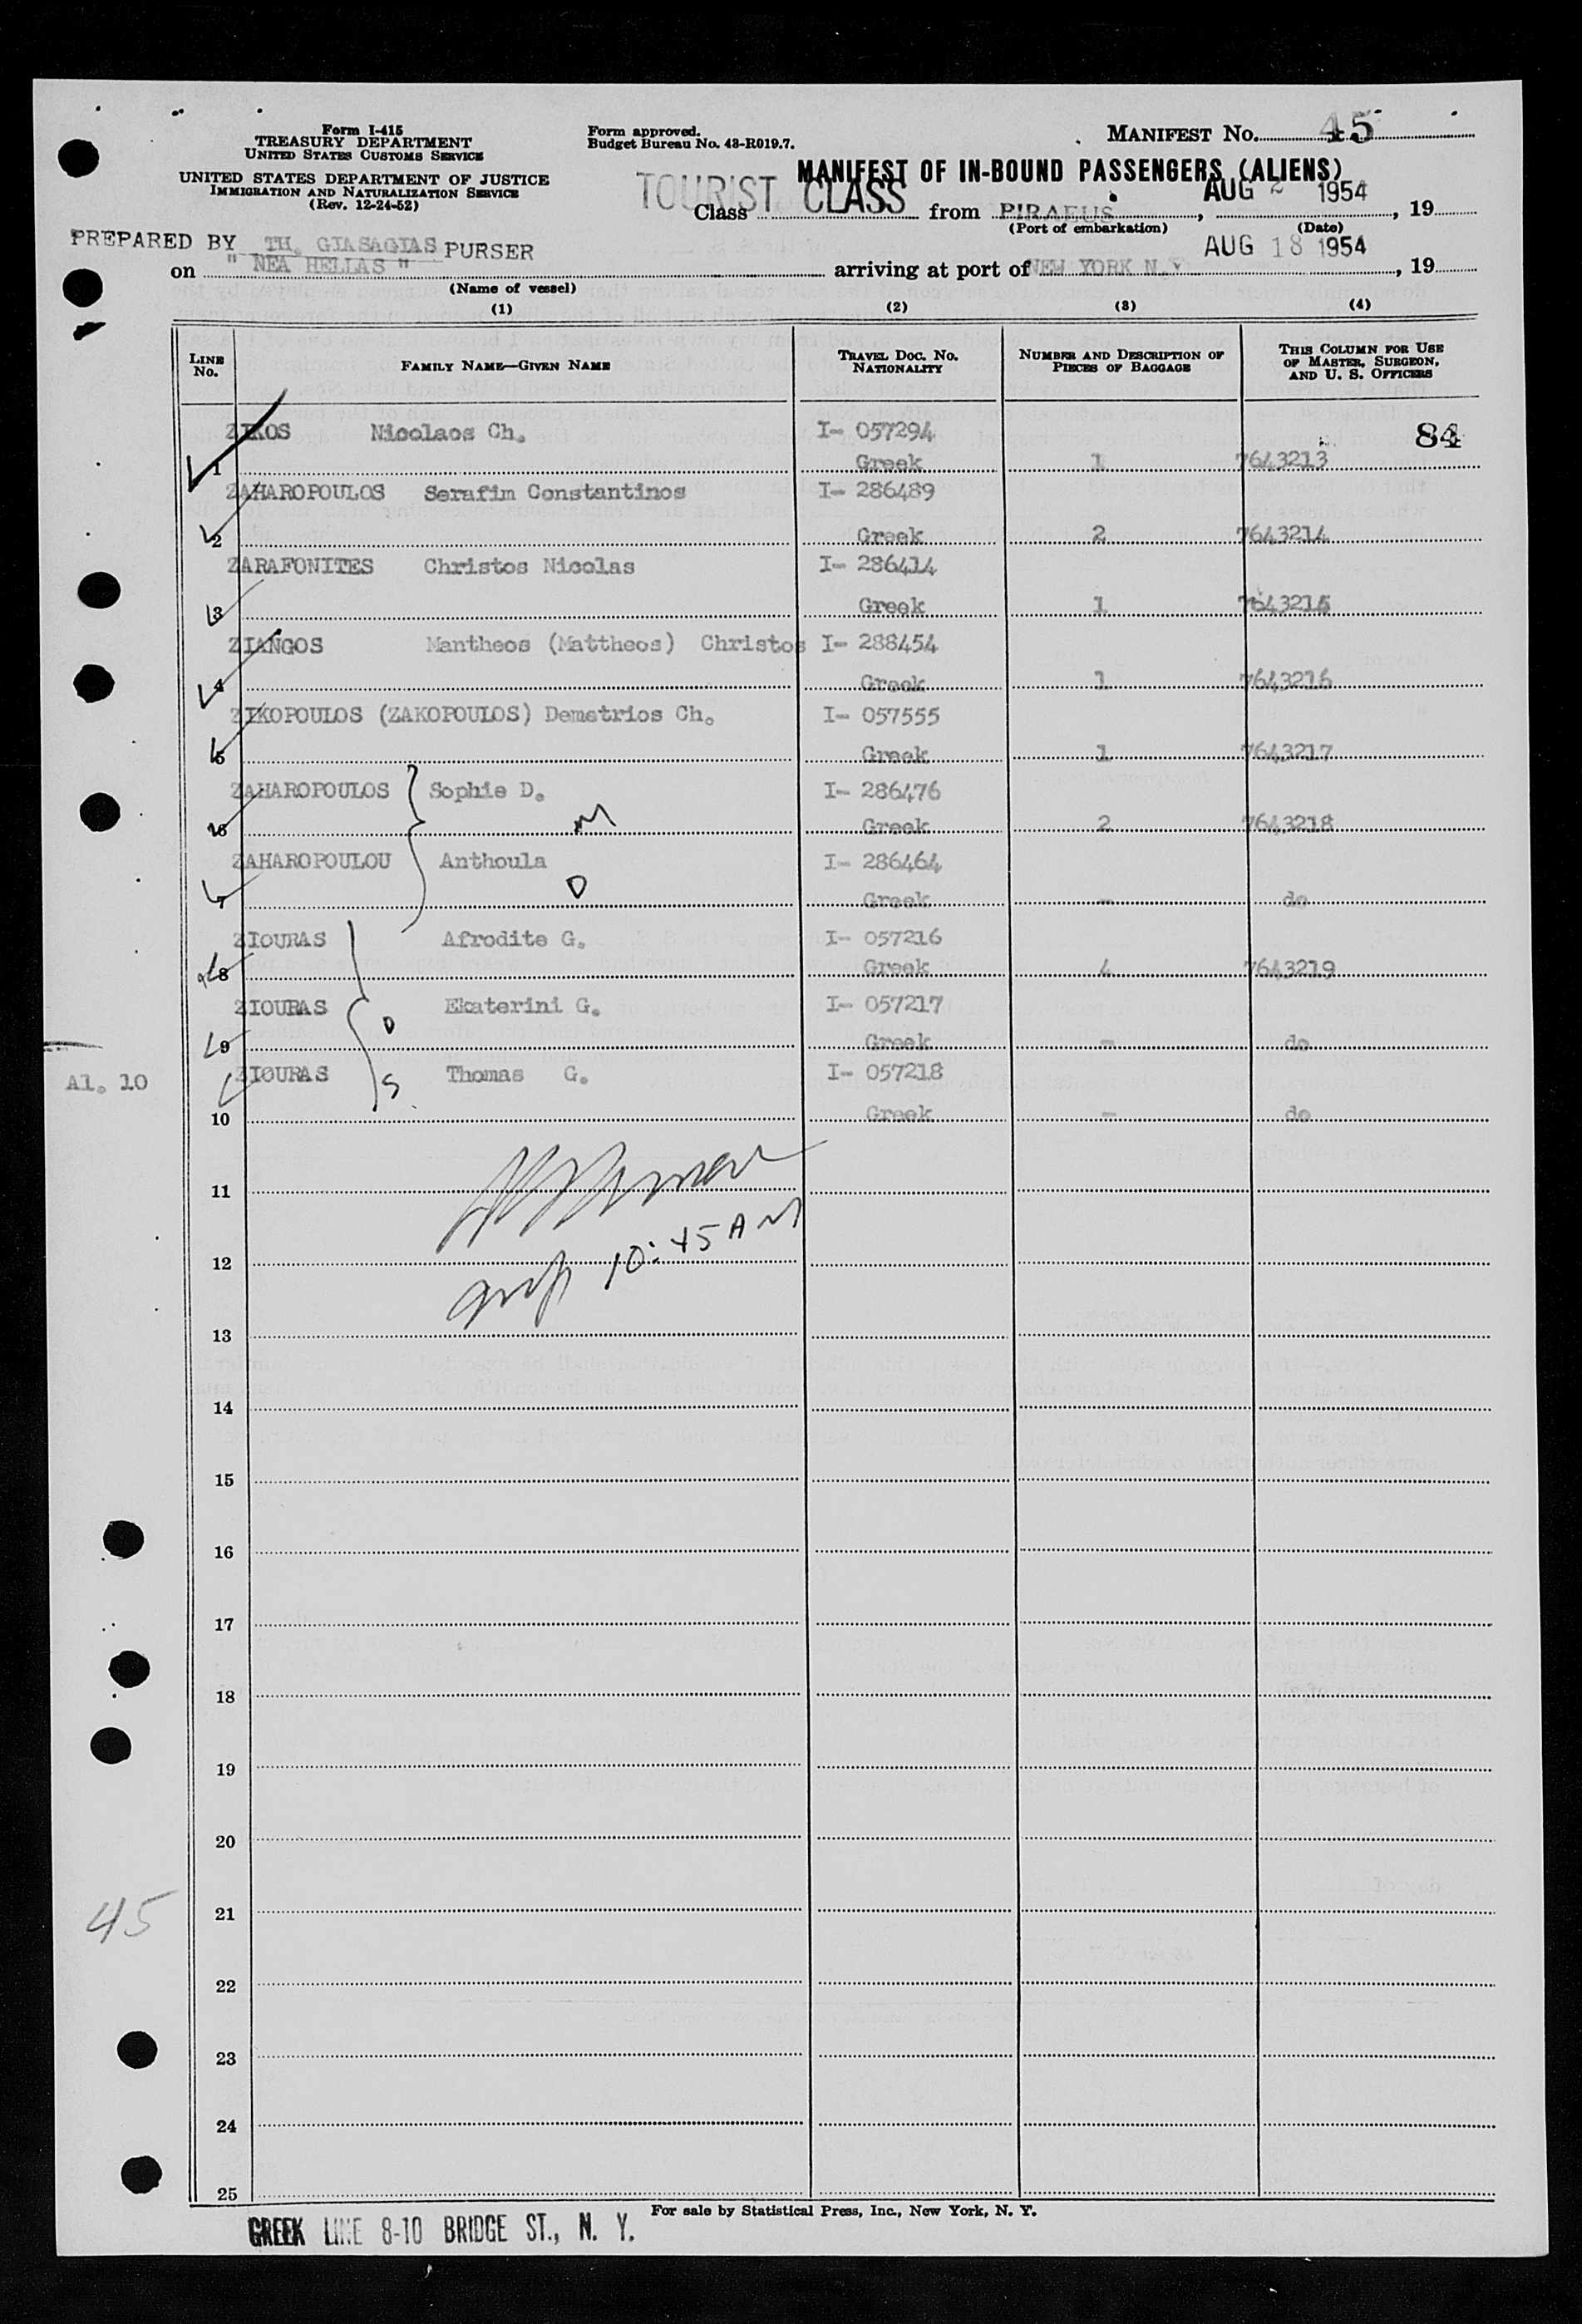 Form I-415
TREASURY DEPARTMENT
UNITED STATES CUSTOMS SERVICE
UNITED STATES DEPARTMENT OF JUSTICE
IMMIGRATION AND NATURALIZATION SERVICE
(Rev. 12-24-52)
Form approved.
Budget Bureau No. 43-R019.7.
MANIFEST No. 45
MANIFEST OF IN-BOUND PASSENGERS (ALIENS)
Class TOURIST CLASS from PIRAEUS, AUG 2 1954, 19
(Port of embarkation) (Date)
PREPARED BY TH. GIASAGIAS PURSER
on " NEA HELLAS " arriving at port of NEW YORK N.Y AUG 18 1954, 19
(Name of vessel)
(1) (2) (3) (4)
LINE No. FAMILY NAME—GIVEN NAME TRAVEL DOC. No. NATIONALITY NUMBER AND DESCRIPTION OF PIECES OF BAGGAGE THIS COLUMN FOR USE OF MASTER, SURGEON, AND U. S. OFFICERS
84
ZIKOS Nicolaos Ch. I- 057294
1 Greek 1 7643213
ZAHAROPOULOS Serafim Constantinos I- 286489
2 Greek 2 7643214
ZARAFONITES Christos Nicolas I- 286414
3 Greek 1 7643215
ZIANGOS Mantheos (Mattheos) Christos I- 288454
4 Greek 1 7643216
ZIKOPOULOS (ZAKOPOULOS) Demetrios Ch. I- 057555
5 Greek 1 7643217
ZAHAROPOULOS Sophie D. I- 286476
6 M Greek 2 7643218
ZAHAROPOULOU Anthoula I- 286464
7 D Greek - do
ZIOURAS Afrodite G. I- 057216
8 Greek 4 7643219
ZIOURAS Ekaterini G. I- 057217
9 D Greek - do
Al. 10 ZIOURAS S Thomas G. I- 057218
10 Greek - do
11
12 10:45 AM
13
14
15
16
17
18
19
20
45
21
22
23
24
25
For sale by Statistical Press, Inc., New York, N. Y.
GREEK LINE 8-10 BRIDGE ST., N. Y.